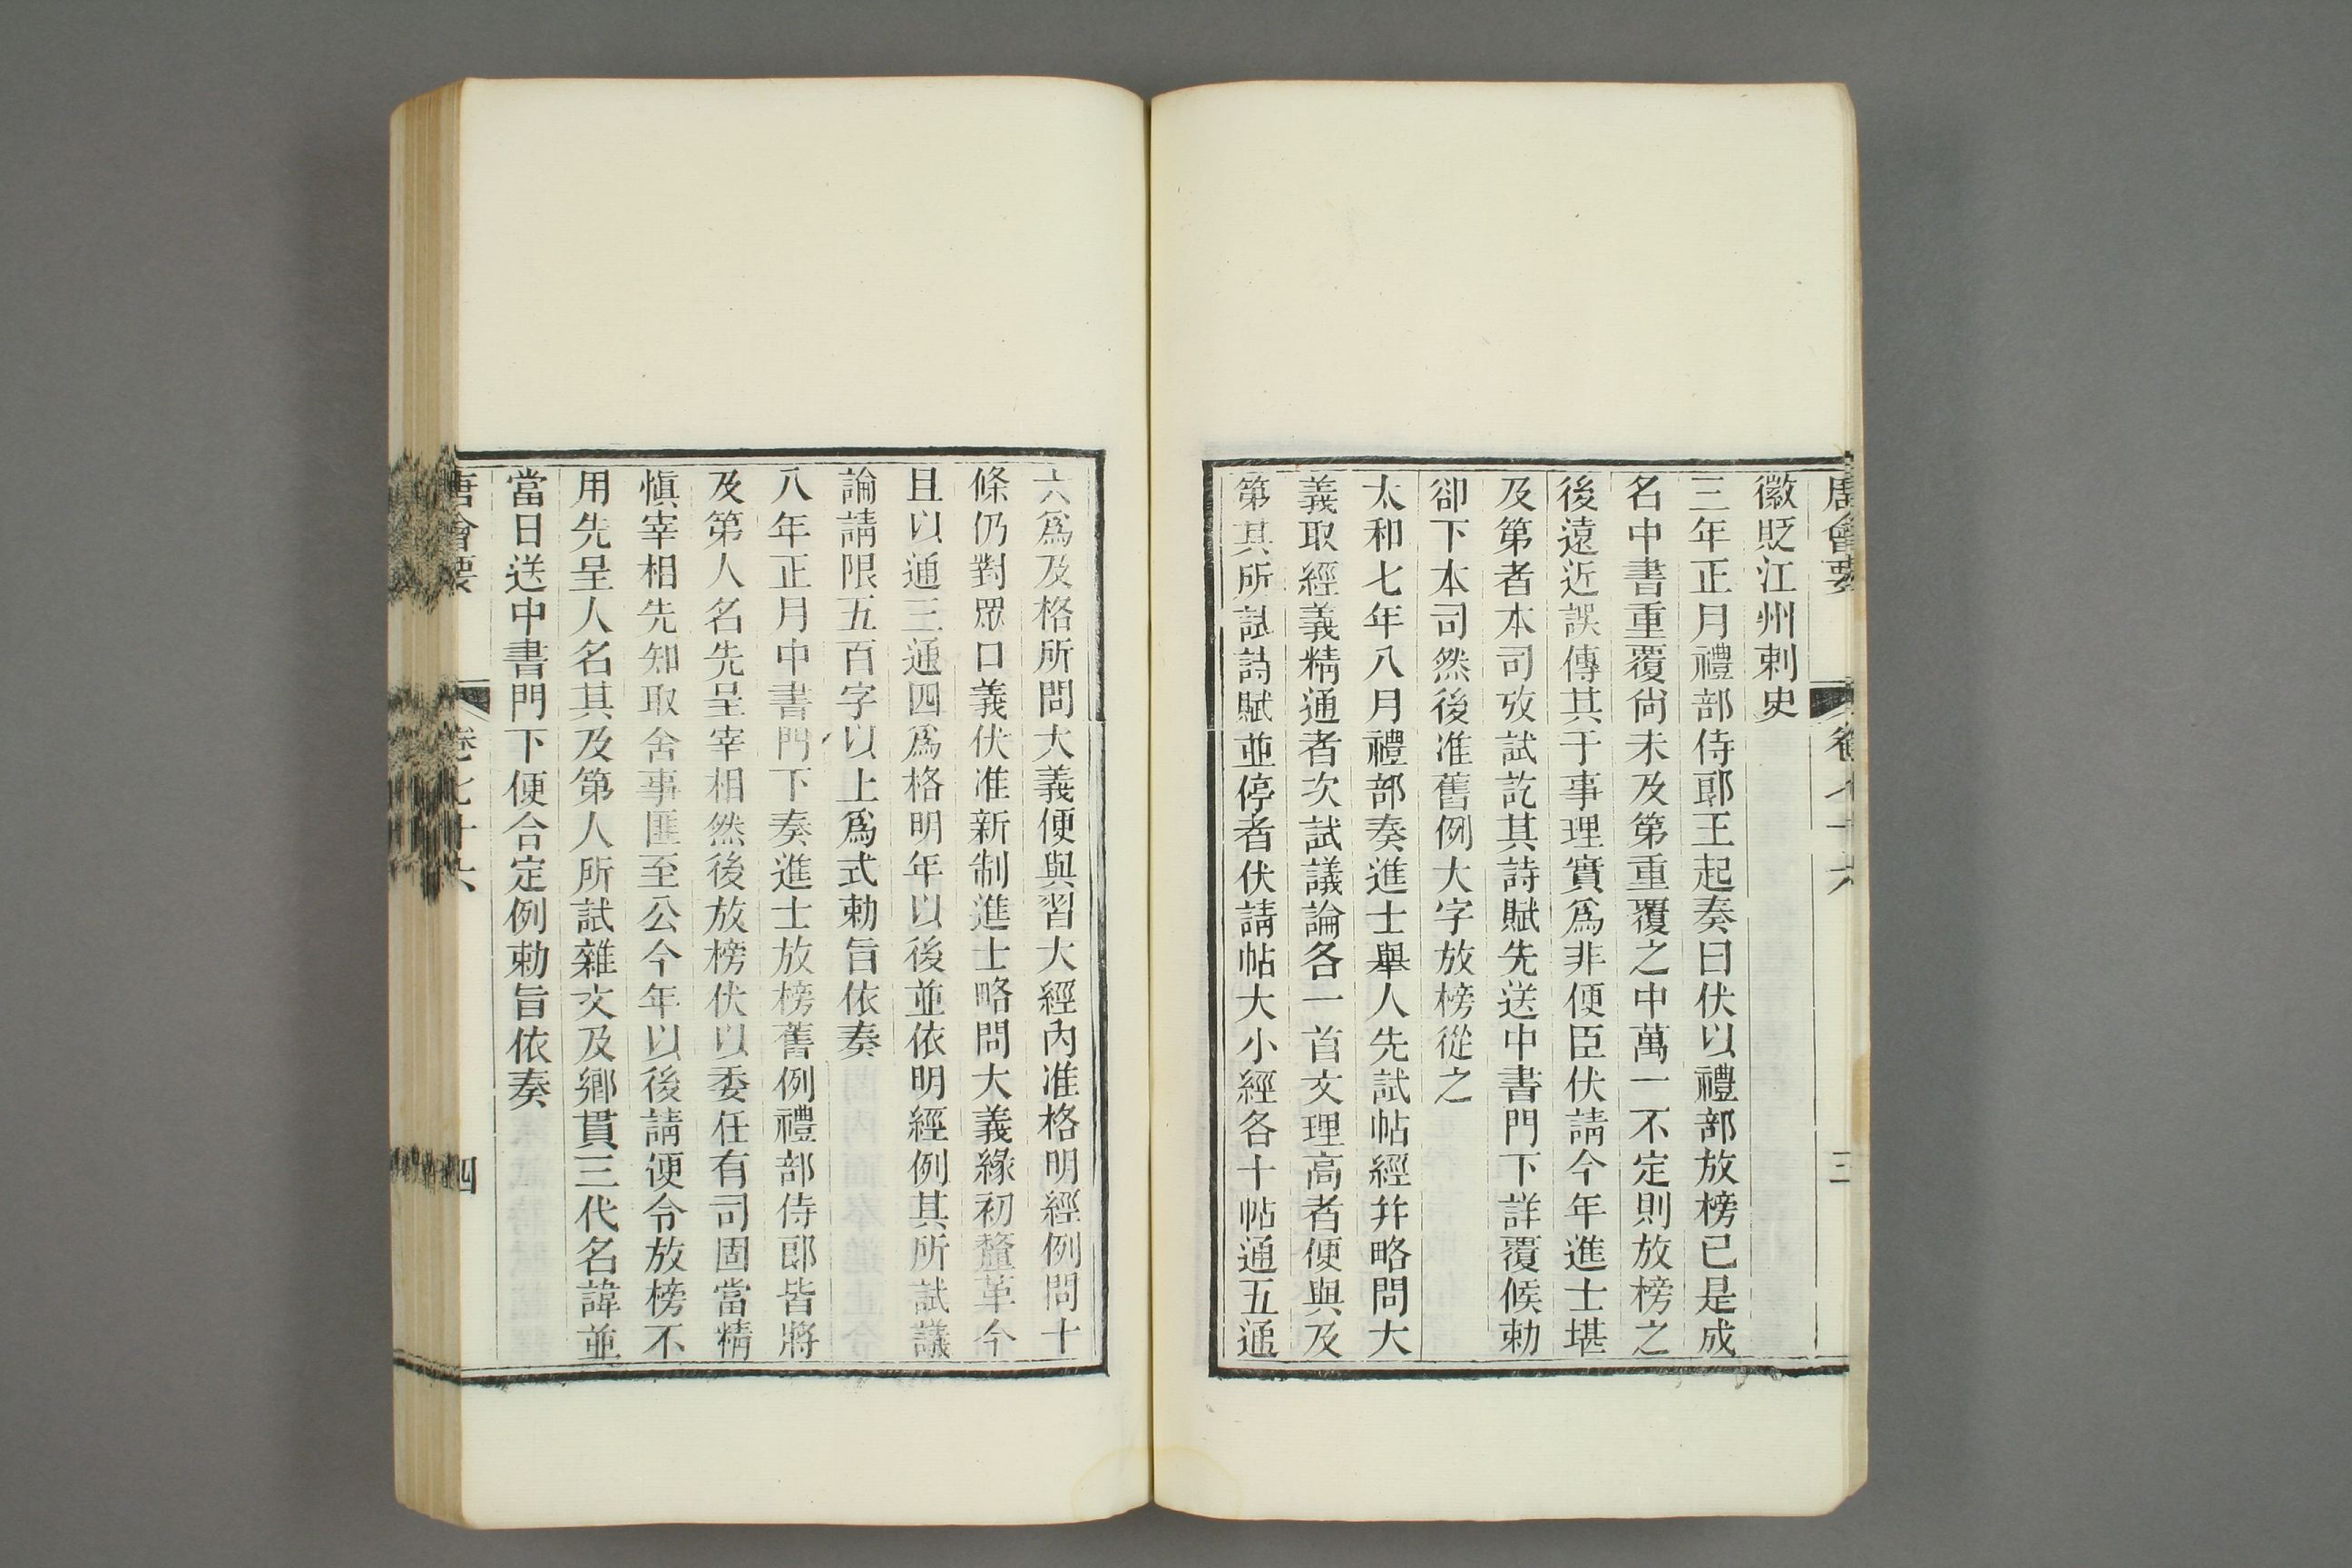 唐會要　卷七十六　三
徽貶江州刺史
三年正月禮部侍郎王起奏曰伏以禮部放榜已是成
名中書重覆尚未及第重覆之中萬一不定則放榜之
後遠近誤傳其于事理實爲非便臣伏請今年進士堪
及第者本司攷試訖其詩賦先送中書門下詳覆候勅
卻下本司然後准舊例大字放榜從之
太和七年八月禮部奏進士舉人先試帖經幷略問大
義取經義精通者次試議論各一首文理高者便與及
第其所試詩賦並停者伏請帖大小經各十帖通五通
六爲及格所問大義便與習大經內准格明經例問十
條仍對眾口義伏准新制進士略問大義緣初釐革今
且以通三通四爲格明年以後並依明經例其所試議
論請限五百字以上爲式勅旨依奏
八年正月中書門下奏進士放榜舊例禮部侍郎皆將
及第人名先呈宰相然後放榜伏以委任有司固當精
愼宰相先知取舍事匪至公今年以後請便令放榜不
用先呈人名其及第人所試雜文及鄉貫三代名諱並
當日送中書門下便合定例勅旨依奏
唐會要　卷七十六　四